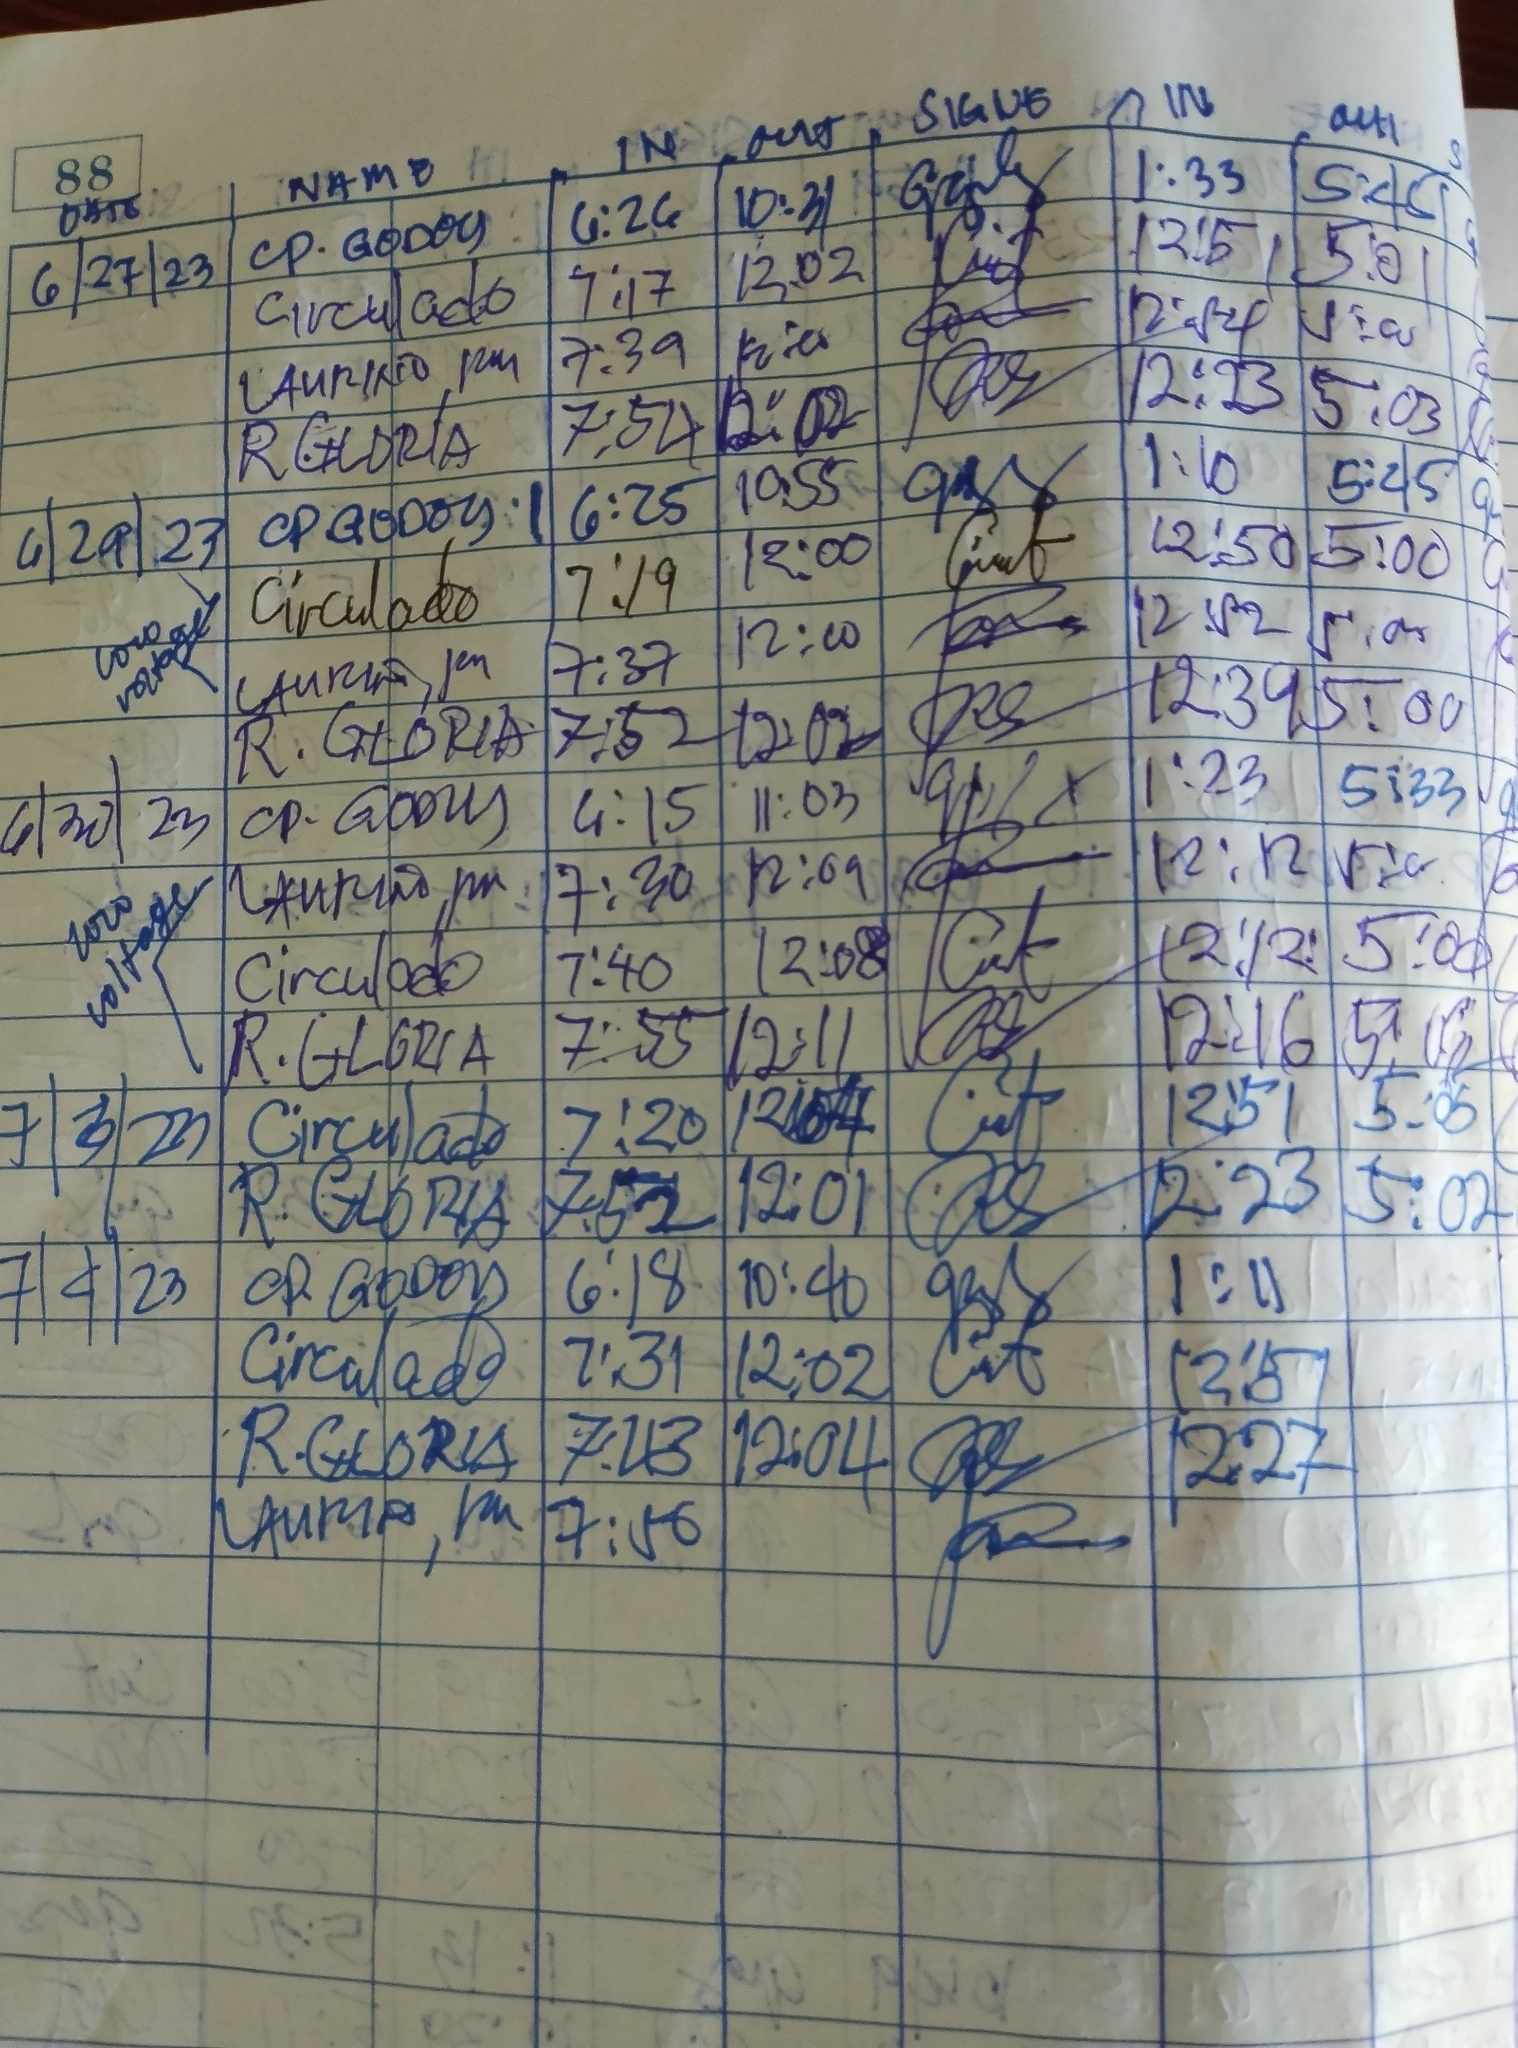 88
DATE NAME IN OUT SIGNE IN OUT
6/27/23 CP. GODOY 6:26 10:31 1:33 5:45
Circulado 7:17 12:02 12:51 5:01
LAURINO, RM 7:39 12:00 12:54 5:00
R. GLORIA 7:54 12:02 12:23 5:03
6/29/23 CP. GODOY 6:25 10:55 1:10 5:45
Circulado 7:19 12:00 12:50 5:00
low
voltage
7:37 12:00 12:52 5:00
R. GLORIA 7:52 12:02 12:39 5:00
6/30/23 CP. GODOY 6:15 11:03 1:23 5:33
LAURINO, RM 7:30 12:09 12:12 5:00
low
voltage
Circulado 7:40 12:08 12:12 5:00
R. GLORIA 7:55 12:11 12:16
7/3/23 Circulado 7:20 12:51 5:05
R. GLORIA 7:52 12:01 12:23 5:02
7/4/23 CP. GODOY 6:18 10:40 1:11
Circulado 7:31 12:02 12:57
R. GLORIA 7:43 12:04 12:27
7:56